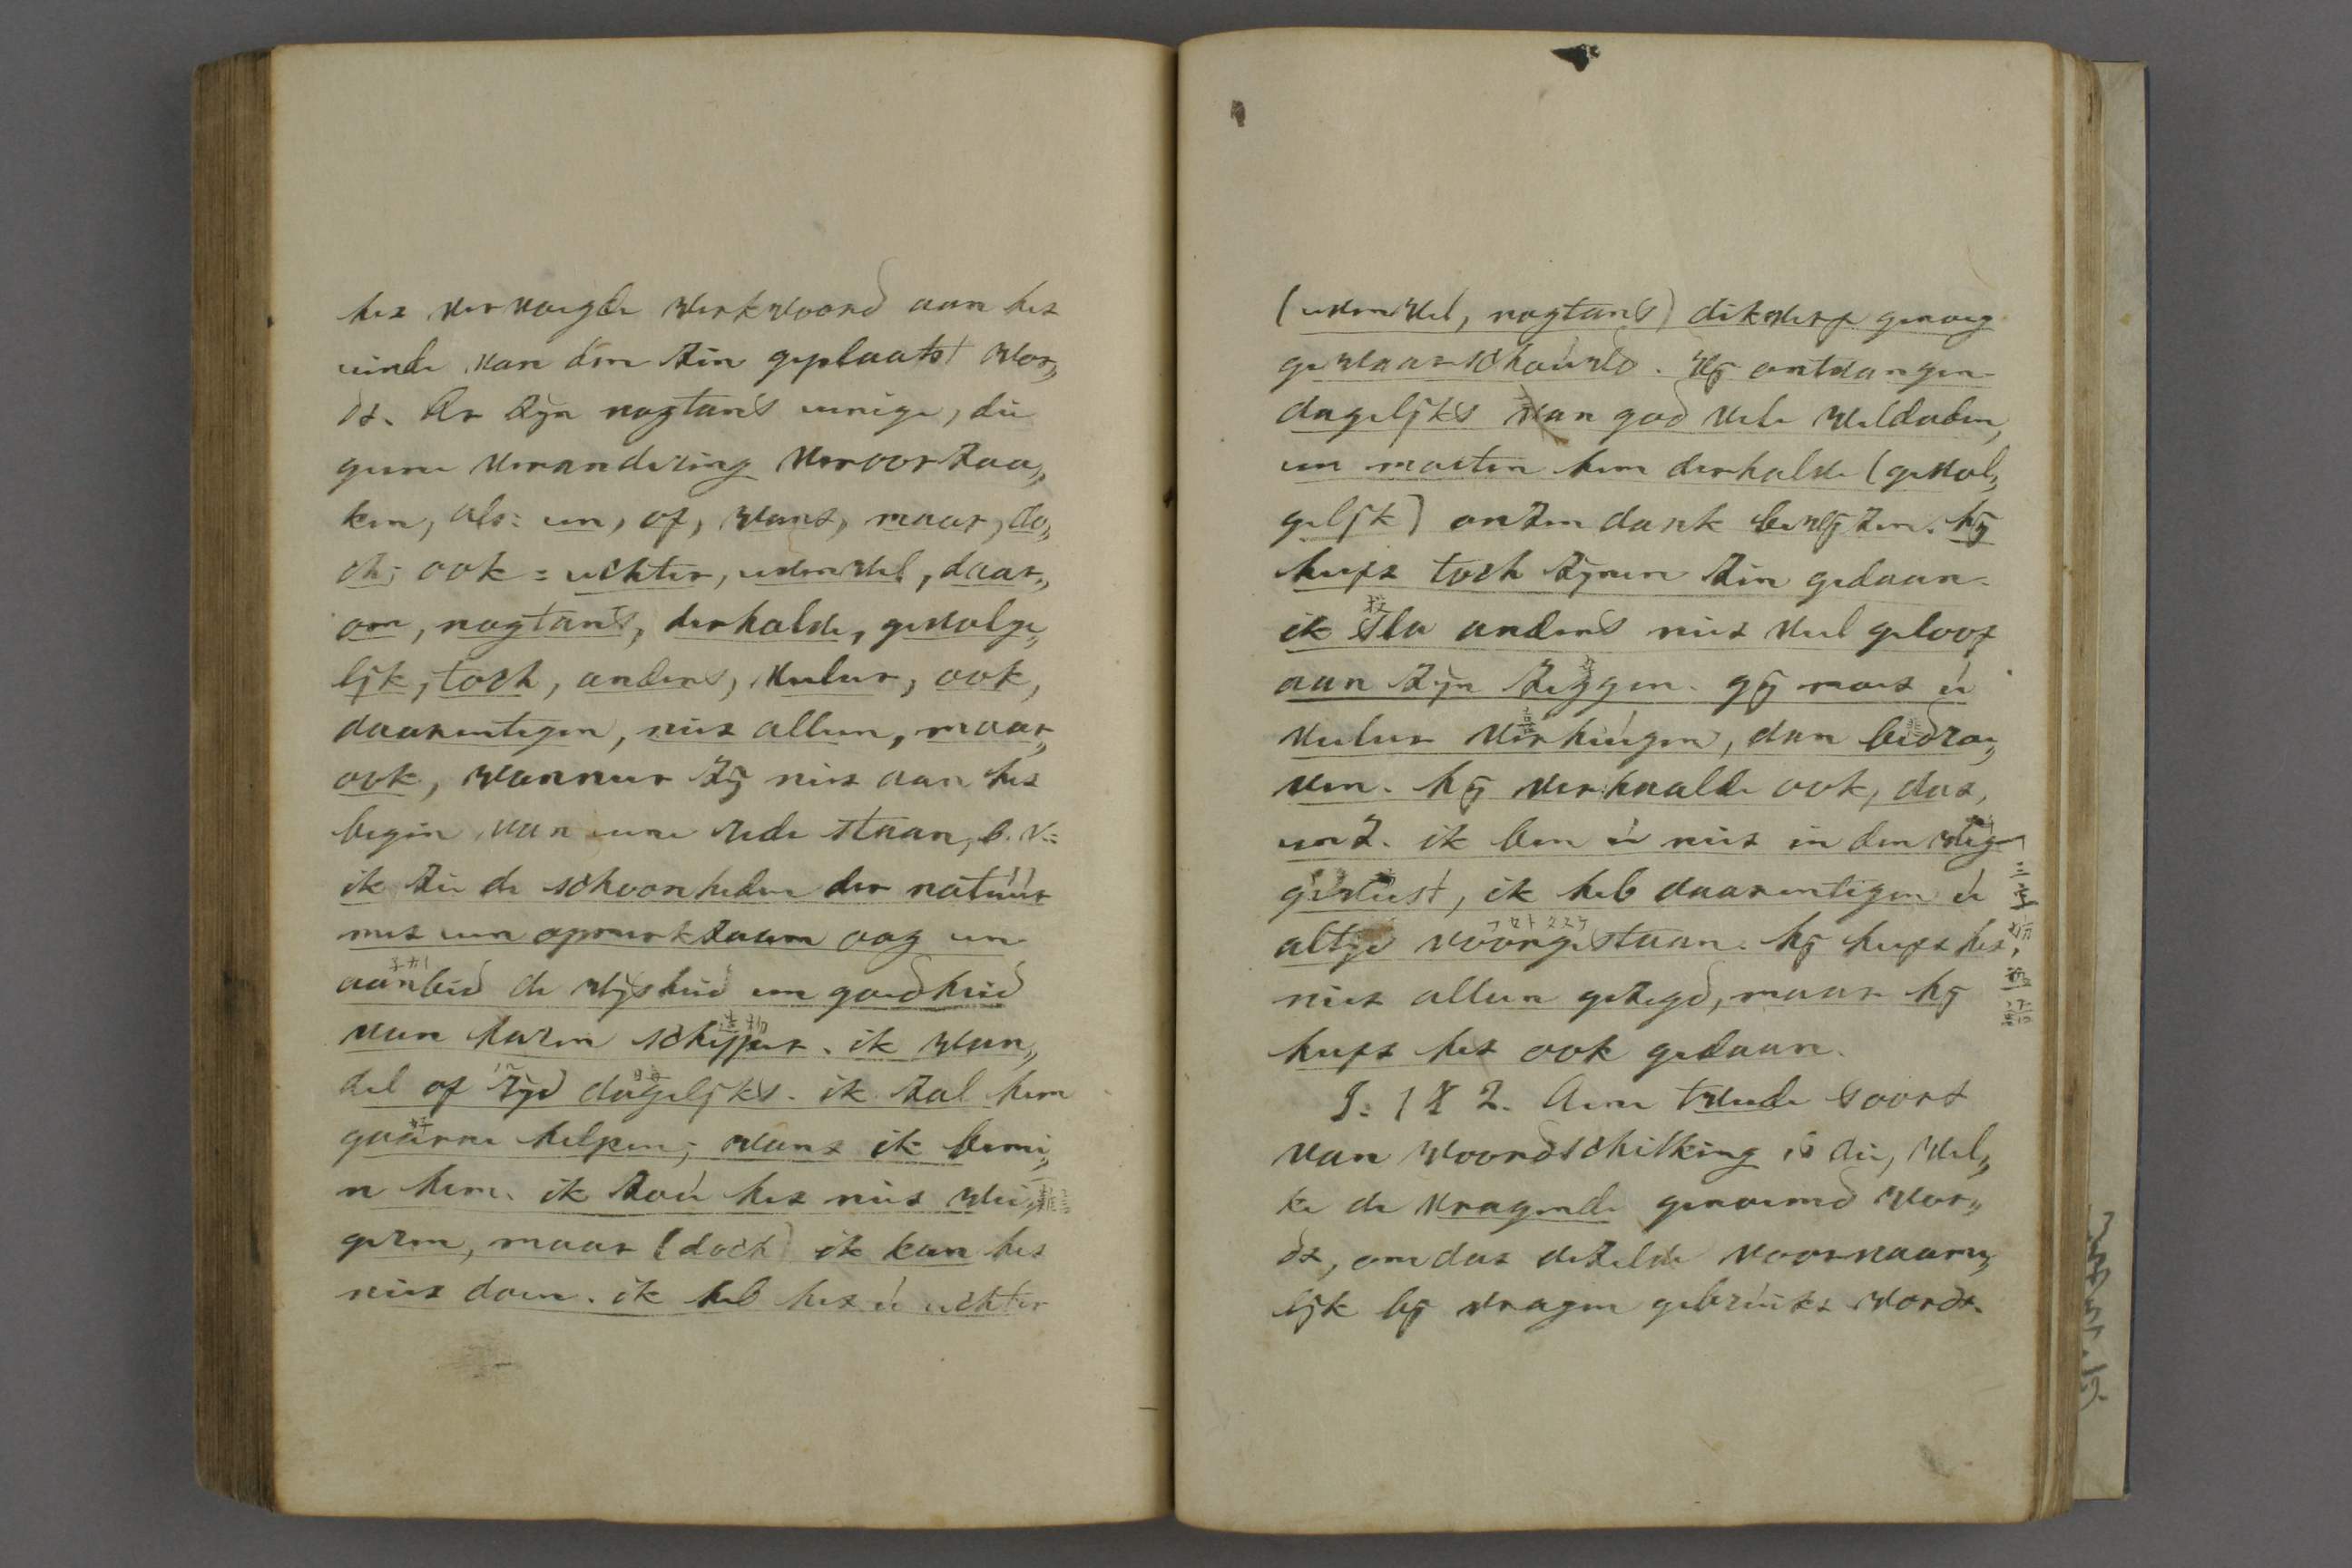 het vervoegde werkwoord aan het
einde van den zin geplaatst wor„
dt. Er zijn nogtans eenige, die
geene verandering veroorzaa„
ken, als: en, of, want, maar, do„
ch; ook: echter, evenwel, daar„
om, nogtans, derhalve, gevolge„
lijk, toch, anders, veeleer, ook,
daarentegen, niet alleen, maar
ook, wanneer zij niet aan het
begin van eene rede staan, b. v:
ik zie de schoonheden der natuur
met een opmerkzaam oog en
aanbid de wijsheid en goedheid
van haren schepper. ik wan„
del of rijd dagelijks. ik zal hem
gaarne helpen; want ik bemi„
n hem. ik zou het niet wei„
geren, maar (doch) ik kan het
niet doen. ik heb het u echter
(evenwel, nogtans) dikwerf genoeg
gewaarschouwd. wij ontvangen
dagelijks van god vele weldaden,
en moeten hem derhalve (gevol„
gelijk) onzen dank bewijzen. hij
heeft toch zijnen zin gedaan.
ik sla anders niet veel geloof
aan zijn zeggen. gij moet u
veeleer verheugen, dan bedroe„
ven. hij verhaalde ook, dat,
enz. ik ben u niet in den weg
geweest, ik heb daarentegen u
altijd voorgestaan. hij heeft het
niet alleen gezegd, maar hij
heeft het ook gedaan.
§. 182. Eene tweede soort
van woordschikking is die, wel„
ke de vragende genoemd wor„
dt, omdat dezelve voornaam„
lijk bij vragen gebruikt wordt.